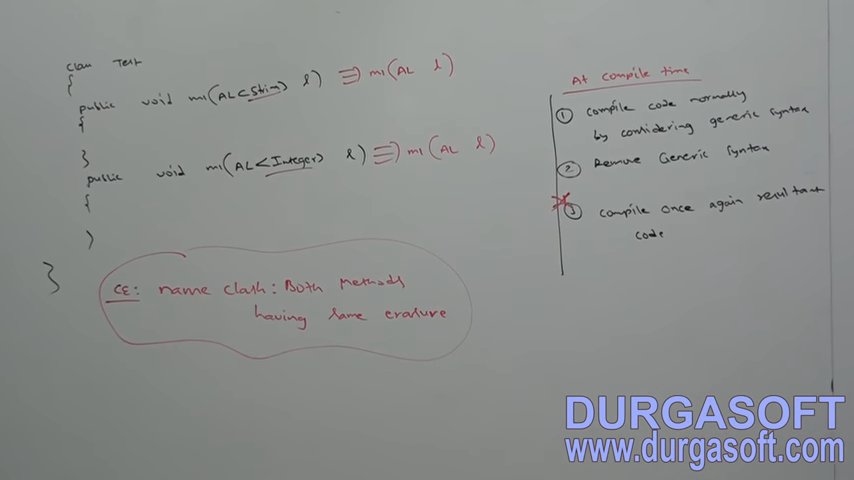 class Test
{
public void m1(AL<String> l) ≡) m1(AL l)
{
}
public void m1(AL<Integer> l) ≡) m1(AL l)
{
}
}
CE: name clash: Both methods
having same erasure
At compile time
① compile code normally
by considering generic syntax
② Remove Generic syntax
③ compile once again resultant
code
DURGASOFT
www.durgasoft.com